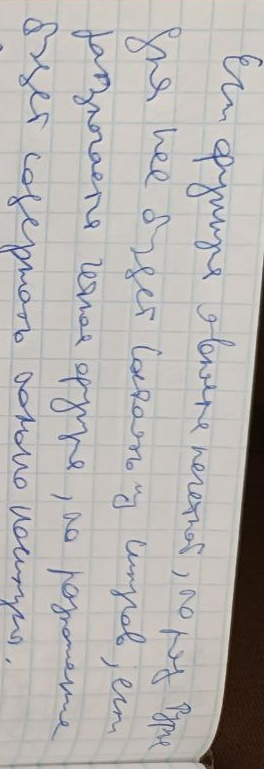 Если функция является нечетной, то ряд Фурье
для нее будет состоять из синусов, если
разлагается четная функция, то разложение
будет содержать только косинусы.